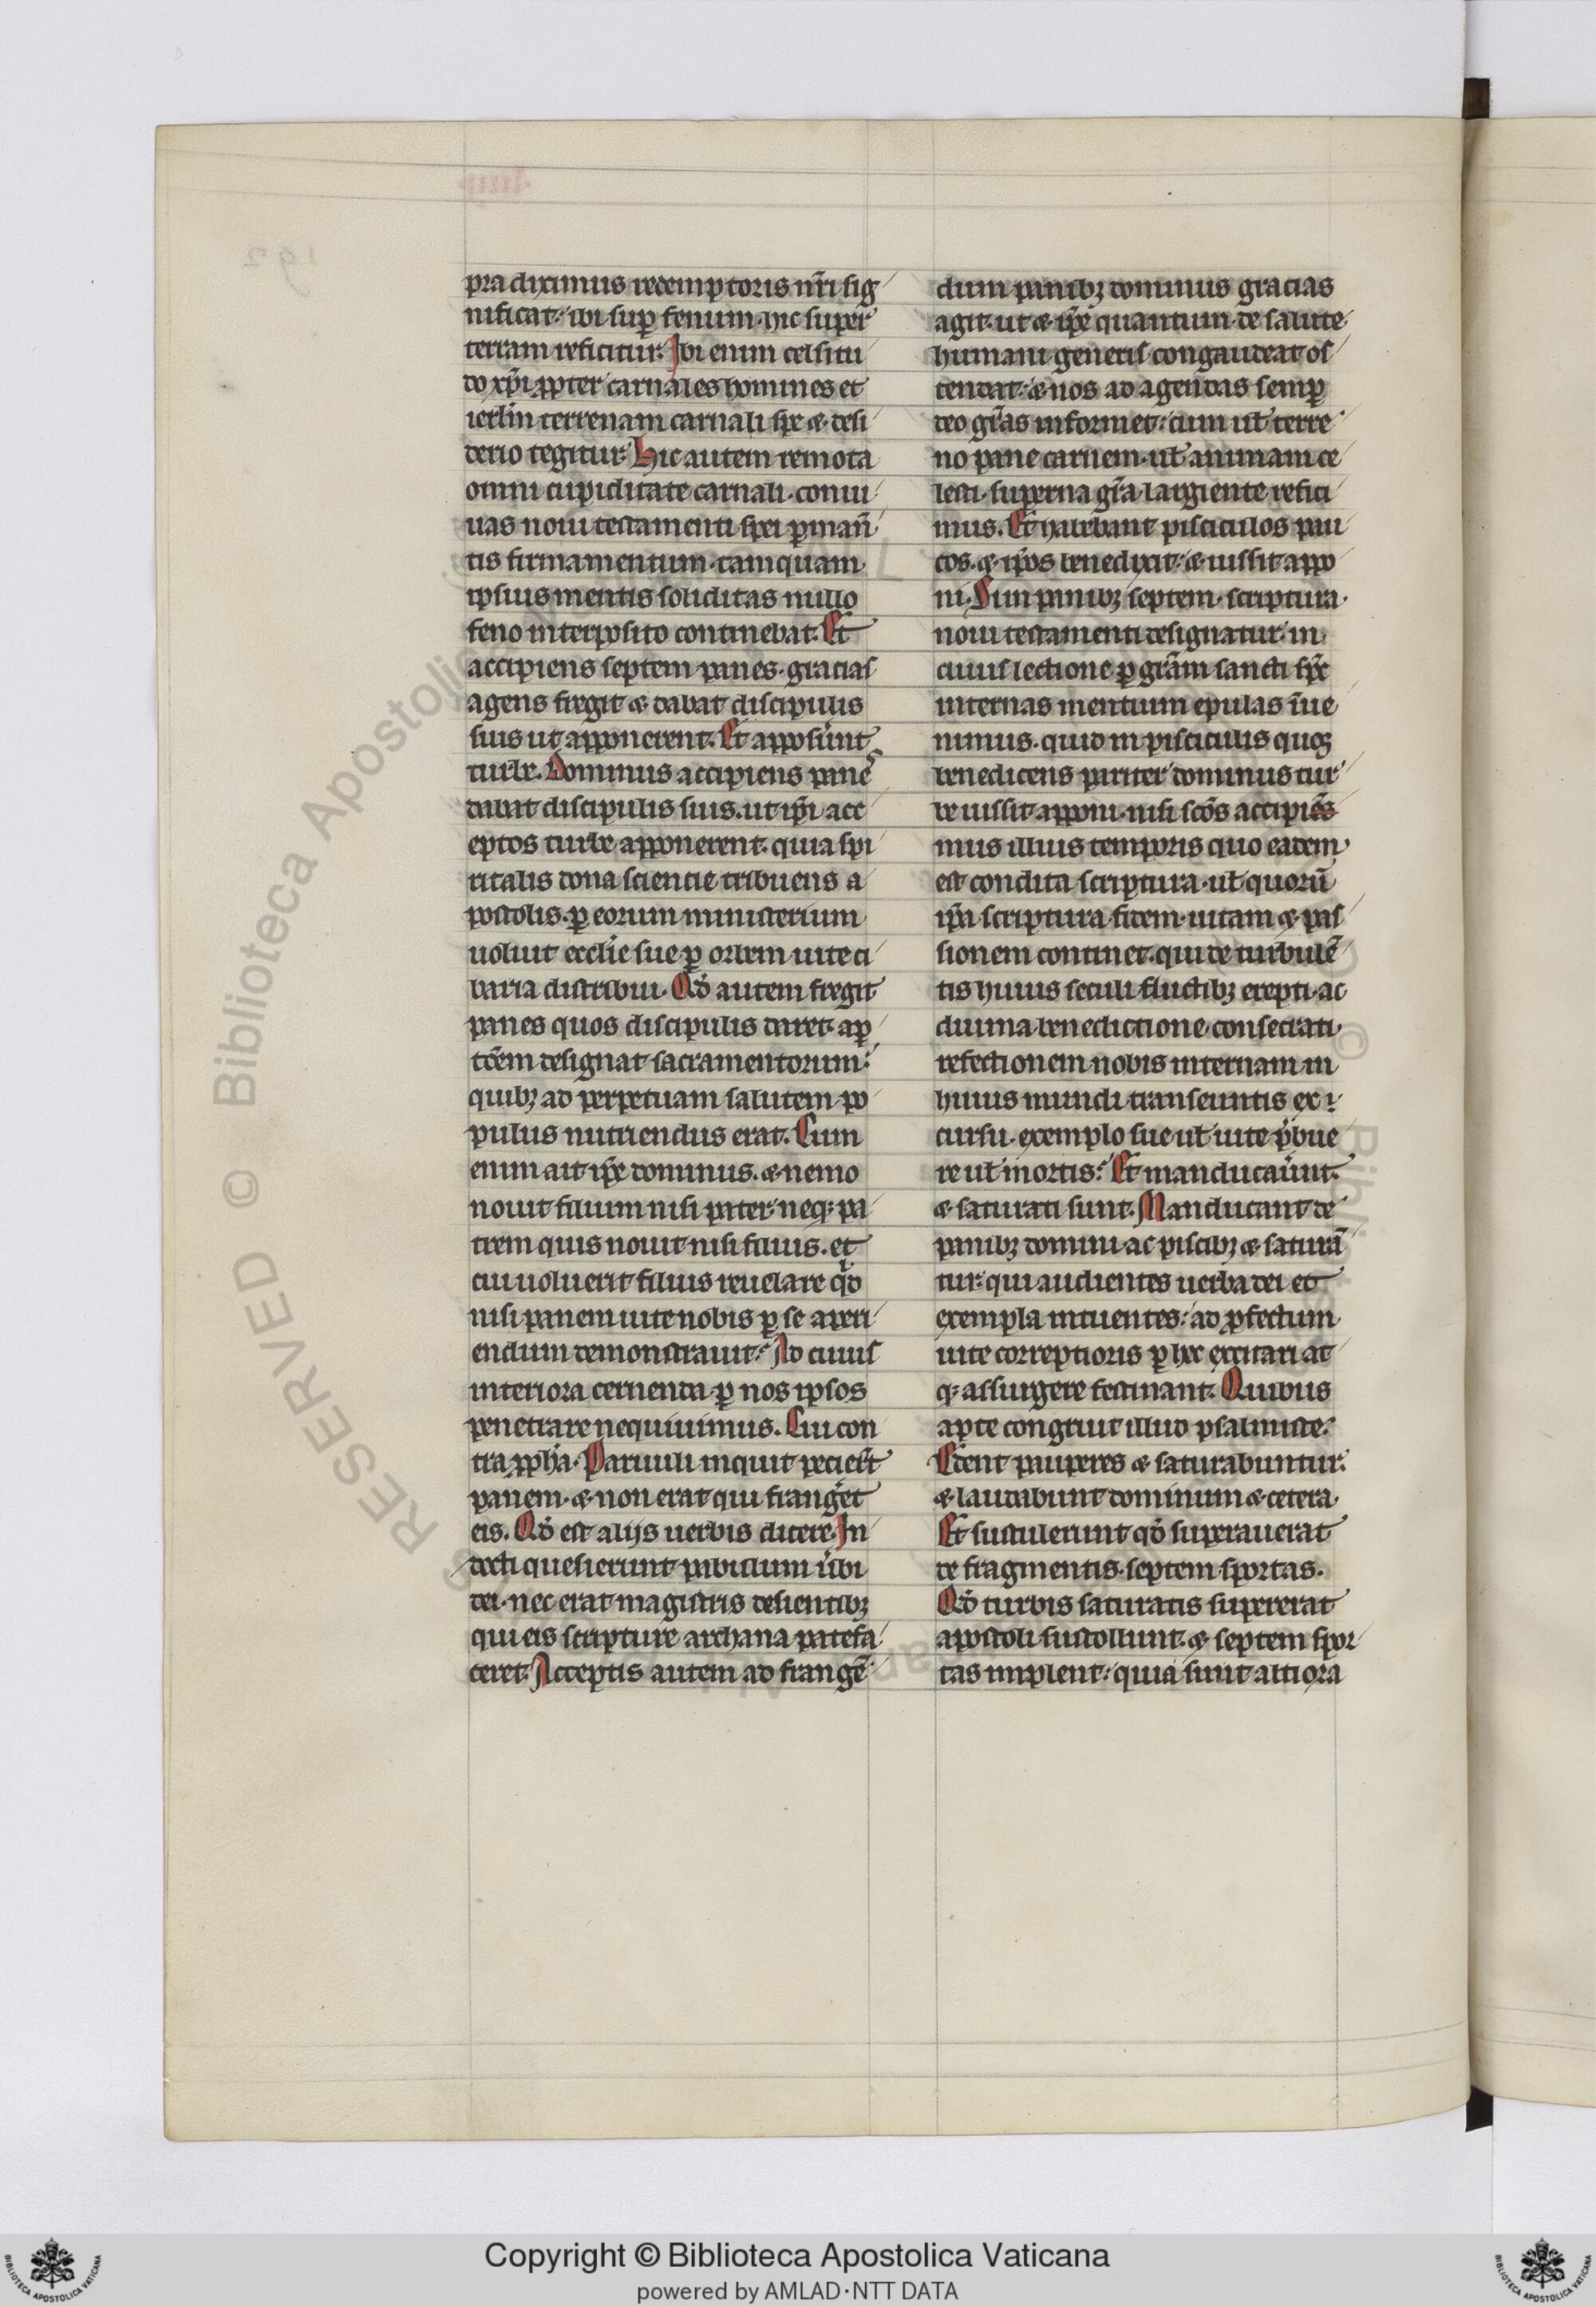 pra diximus redemptoris nr̄i sig
nificat. ibi sup̱ fenum. hic super
terram reficitur. Ibi enim celsitu
do xp̄i ꝓpter carnales homines et
ierlm̄ terrenam carnali spe ⁊ desi
derio tegitur. Hic autem remota
omni cupiditate carnali. conui
uas noui testamenti spei ꝑman̄
tis firmamentum. tamquam
ipsius mentis soliditas nullo
feno interposito continebat. Et
accipiens septem panes. gracias
agens fregit ⁊ dabat discipulis
suis ut apponerent. Et apposu̅nt
turbe. Dominus accipiens panes
dabat discipulis suis. ut ip̄i acc
eptos turbe apponerent. quia spi
ritalis dona sciencie tribuens a
postolis. ꝑ eorum ministerium
uoluit eccl̄ie sue ꝑ orbem uite ci
baria distribui. Qd̄ autem fregit
panes quos discipulis daret. aꝑ
tc̄em designat sacramentorum:
quibꝫ ad perpetuam salutem po
pulus nutriendus erat. Cum
enim ait ip̄e dominus. ⁊ nemo
nouit filium nisi pater. neqꝫ pa
trem quis nouit nisi filius. et
cui uoluerit filius reuelare qd̄
nisi panem uite nobis ꝑ se aperi
endum demonstrauit. Ad cuius
interiora cernenda ꝑ nos ipsos
penetrare nequiuimus. Cui con
tra ꝓpha. Paruuli inquit pecier̄t
panem. ⁊ non erat qui frang̅et
eis. Qd̄ est alijs uerbis dicere. In
docti quesierunt pabulum u̅bi
dei. nec erat magistris desientibꝫ
qui eis scripture archana patefa
ceret. Acceptis autem ad frangē
dum panibꝫ dominus gracias
agit. ut ⁊ ip̄e quantum de salute
humani generis congaudeat os
tendat. ⁊ nos ad agendas semꝑ
deo gr̄as informet: cum ul̄ terre
no pane carnem. ul̄ animam ce
lesti. superna gr̄a largiente refici
mus. Et habebant pisciculos pau
cos. ⁊ ip̄os benedixit. ⁊ iussit appo
ni. Sun panibꝫ septem. scriptura
noui testamenti designatur. in
cuius lectione ꝑ gr̄am sancti sp̄c
internas mentium epulas īue
nimus. quid in pisciculis quoqꝫ
benedicens pariter dominus tur
be iussit apponi. nisi sc̄os accipies
mus illius temporis quo eadem
est condita scriptura. ul̄ quorū
ip̄a scriptura fidem. uitam ⁊ pas
sionem continet. qui de turbulē
tis huius seculi fluctibꝫ erepti. ac
diuina benedictione consecrati.
refectionem nobis internam in
huius mundi transeuntis ex
cursu. exemplo sue ul̄ uite p̄bue
re ul̄ mortis. Et manducau̅unt.
⁊ saturati sunt. Manducant de
panibꝫ domini ac piscibꝫ ⁊ saturā
tur. qui audientes uerba dei et
exempla intuentes. ad ꝓfectum
uite correptioris ꝑ hec excitari at
qꝫ assurgere festinant. Quibus
apte congruit illud psalmiste.
Edent pauperes ⁊ saturabuntur.
⁊ laudabunt dominum ⁊ cetera.
Et sustulerunt qd̄ superauerat
de fragmentis. septem sportas.
Qd̄ turbis saturatis supererat
apostoli sustollunt. ⁊ septem spor
tas implent. quia sunt altiora
Copyright © Biblioteca Apostolica Vaticana
powered by AMLAD·NTT DATA